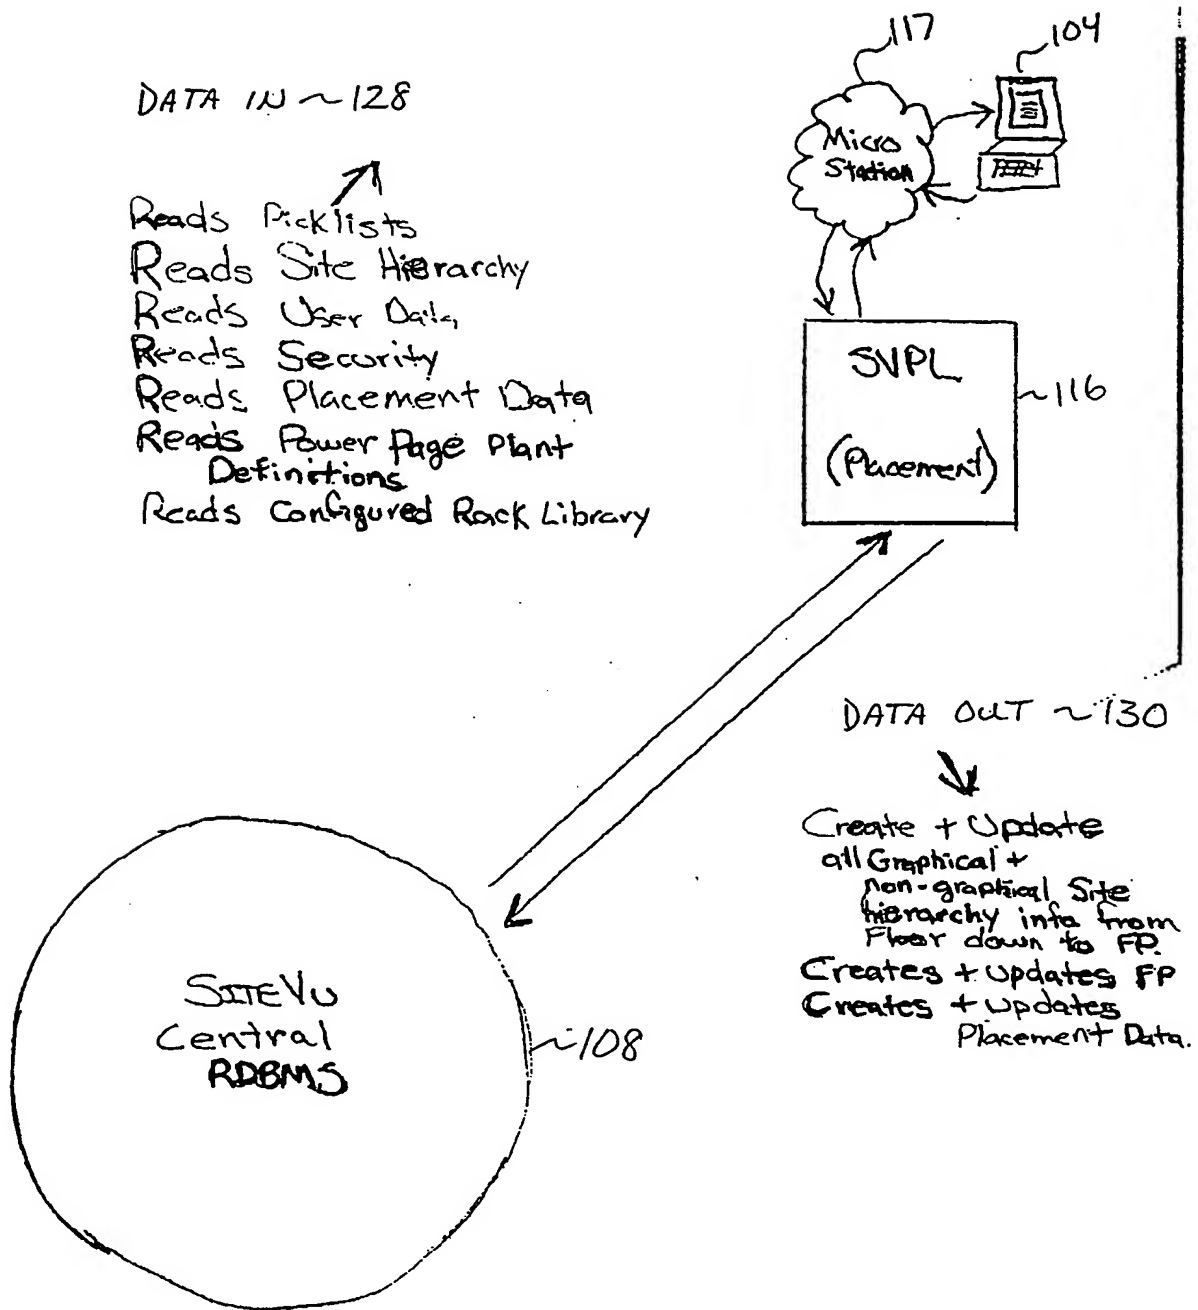 117
104
DATA IN ~ 128
Micro
Station
Reads Picklists
Reads Site Hierarchy
Reads User Data
Reads Security
Reads Placement Data
Reads Power Page Plant
Definitions
Reads Configured Rack Library
SVPL
(Placement)
~116
DATA OUT ~ 130
Create + Update
all Graphical +
non-graphical Site
hierarchy info from
Floor down to FP.
Creates + updates FP
Creates + updates
Placement Data.
SITEVu
Central
RDBMS
~108